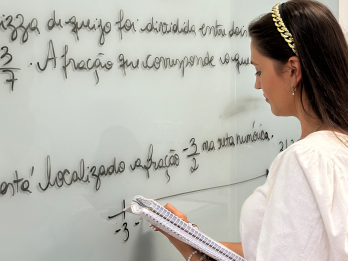 izza de queijo foi dividida entre dois
3/7 . A fração que corresponde
está localizado a fração -3/2 na reta numérica.
-3